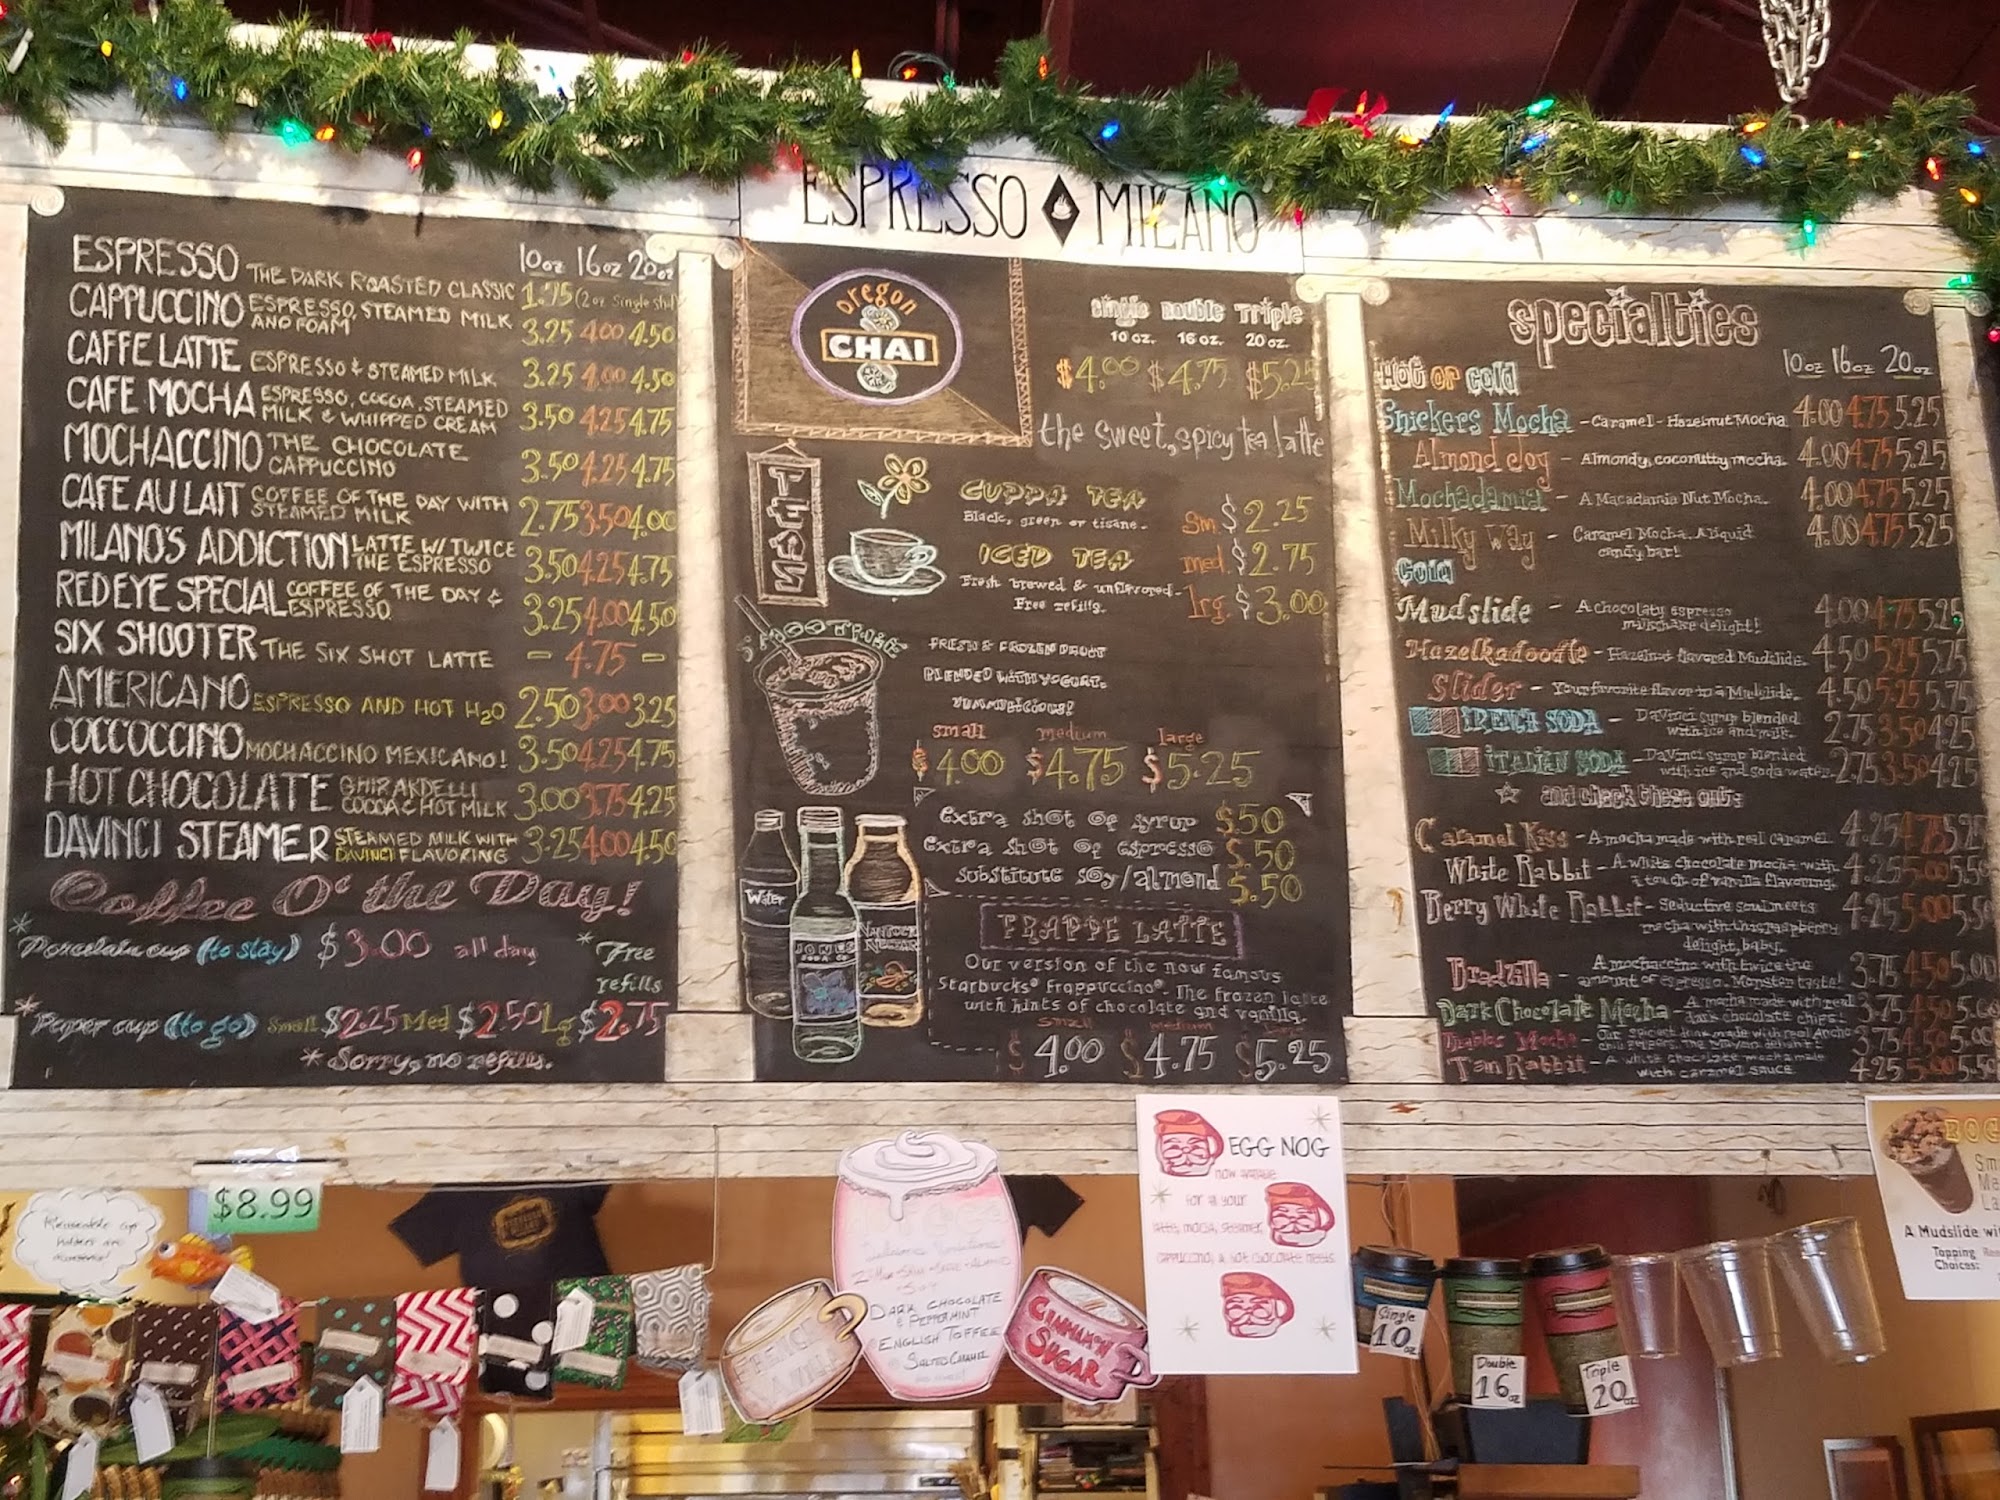 ESPRESSO MILANO
10oz 16oz 20oz
ESPRESSO THE DARK ROASTED CLASSIC 1.75 (2oz Single
CAPPUCCINO ESPRESSO, STEAMED MILK AND FOAM 3.25 4.00 4.50
CAFFE LATTE ESPRESSO & STEAMED MILK 3.25 4.00 4.50
CAFE MOCHA ESPRESSO, COCOA, STEAMED MILK & WHIPPED CREAM 3.50 4.25 4.75
MOCHACCINO THE CHOCOLATE CAPPUCCINO 3.50 4.25 4.75
CAFE AU LAIT COFFEE OF THE DAY WITH STEAMED MILK 2.75 3.50 4.00
MILANO'S ADDICTION LATTE W/ TWICE THE ESPRESSO 3.50 4.25 4.75
RED EYE SPECIAL COFFEE OF THE DAY & ESPRESSO 3.25 4.00 4.50
SIX SHOOTER THE SIX SHOT LATTE - 4.75 -
AMERICANO ESPRESSO AND HOT H2O 2.50 3.00 3.25
COCCOCCINO MOCHACCINO MEXICANO! 3.50 4.25 4.75
HOT CHOCOLATE GHIRARDELLI COCOA & HOT MILK 3.00 3.75 4.25
DAVINCI STEAMER STEAMED MILK WITH DAVINCI FLAVORING 3.25 4.00 4.50
Coffee O' the Day!
* Porcelain cup (to stay) $3.00 all day * Free refills
* Paper cup (to go) Small $2.25 Med $2.50 Lg $2.75
* Sorry, no refills.
oregon
CHAI
single Double Triple
10 oz. 16 oz. 20 oz.
$4.00 $4.75 $5.25
the sweet, spicy tea latte
CUPPA TEA
Black, green or tisane.
ICED TEA
Fresh brewed & unflavored-
Free refills.
Sm. $2.25
med. $2.75
lrg. $3.00
SMOOTHIES
FRESH & FROZEN FRUIT
BLENDED WITH YOGURT.
YUMMILICIOUS!
small medium large
$4.00 $4.75 $5.25
extra shot of syrup $.50
extra shot of espresso $.50
substitute soy/almond $.50
Water
JONES
SODA CO
NANTUCKET
NECTARS
FRAPPE LATTE
Our version of the now famous
Starbucks® frappuccino®. The frozen latte
with hints of chocolate and vanilla.
small medium
$4.00 $4.75 $5.25
specialties
Hot or cold
10oz 16oz 20oz
Snickers Mocha - Caramel - Hazelnut Mocha 4.00 4.75 5.25
Almond Joy - Almondy, coconutty mocha. 4.00 4.75 5.25
Mochadamia - A Macadamia Nut Mocha. 4.00 4.75 5.25
Milky Way - Caramel Mocha. A liquid candy bar! 4.00 4.75 5.25
Cold
Mudslide - A chocolaty espresso milkshake delight! 4.00 4.75 5.25
Hazelkadoodle - Hazelnut flavored Mudslide. 4.50 5.25 5.75
Slider - Your favorite flavor in a Mudslide. 4.50 5.25 5.75
FRENCH SODA - DaVinci syrup blended with ice and milk. 2.75 3.50 4.25
ITALIAN SODA - DaVinci syrup blended with ice and soda water. 2.75 3.50 4.25
and check these out:
Caramel Kiss - A mocha made with real caramel. 4.25 4.75 5.25
White Rabbit - A white chocolate mocha with a touch of vanilla flavoring. 4.25 5.00 5.50
Berry White Rabbit - Seductive soul meets mocha with this raspberry delight, baby. 4.25 5.00 5.50
Bradzilla - A mochaccino with twice the amount of espresso. Monster taste! 3.75 4.50 5.00
Dark Chocolate Mocha - A mocha made with real dark chocolate chips! 3.75 4.50 5.00
Diablos Mocha - Our spiciest drink made with real Ancho chili peppers. The Mayan delight! 3.75 4.50 5.00
Tan Rabbit - A white chocolate mocha made with caramel sauce 4.25 5.00 5.50
$8.99
Reusable cup
holders are
DARK CHOCOLATE
& PEPPERMINT
ENGLISH TOFFEE
SALTED CARAMEL
FRENCH
VANILLA
CINNAMON
SUGAR
EGG NOG
now available
for all your
latte, mocha, steamer,
cappuccino, & hot chocolate needs
Single
10oz
Double
16oz
Triple
20oz
A Mudslide wi
Topping
Choices: